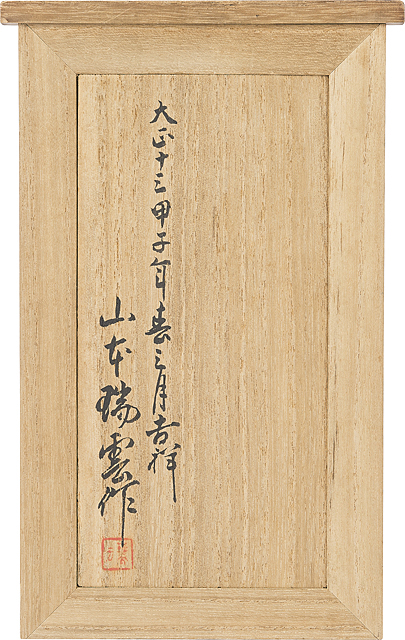 大正十三甲子年春三月吉祥
山本瑞雲作